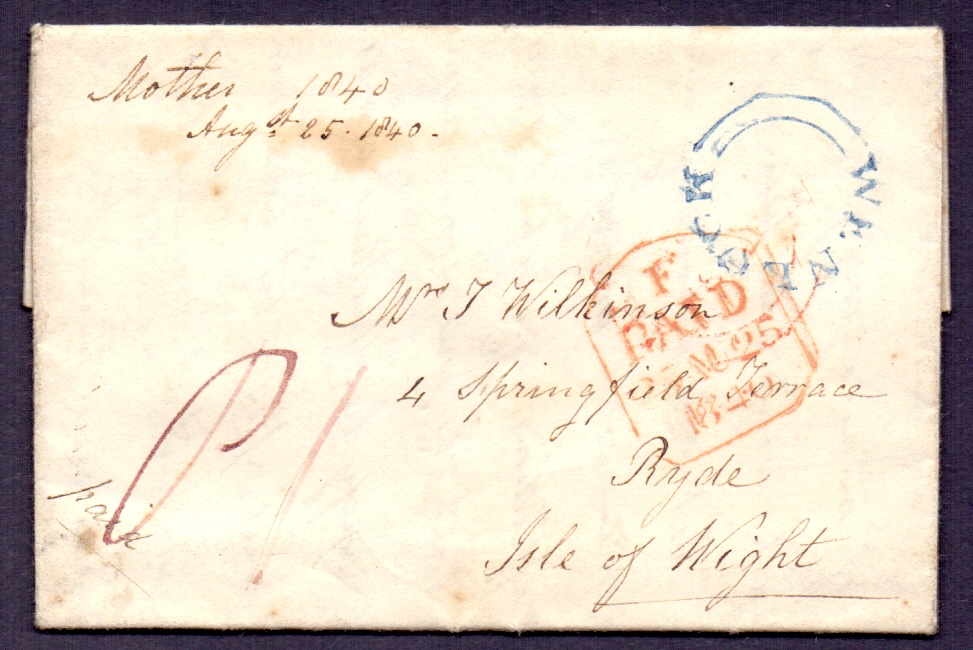 Mother 1840
Augst 25. 1840.
WENLOCK
F
PAID
25
1840
Mrs J Wilkinson
4 Springfield Terrace
Ryde
Isle of Wight
paid
P1